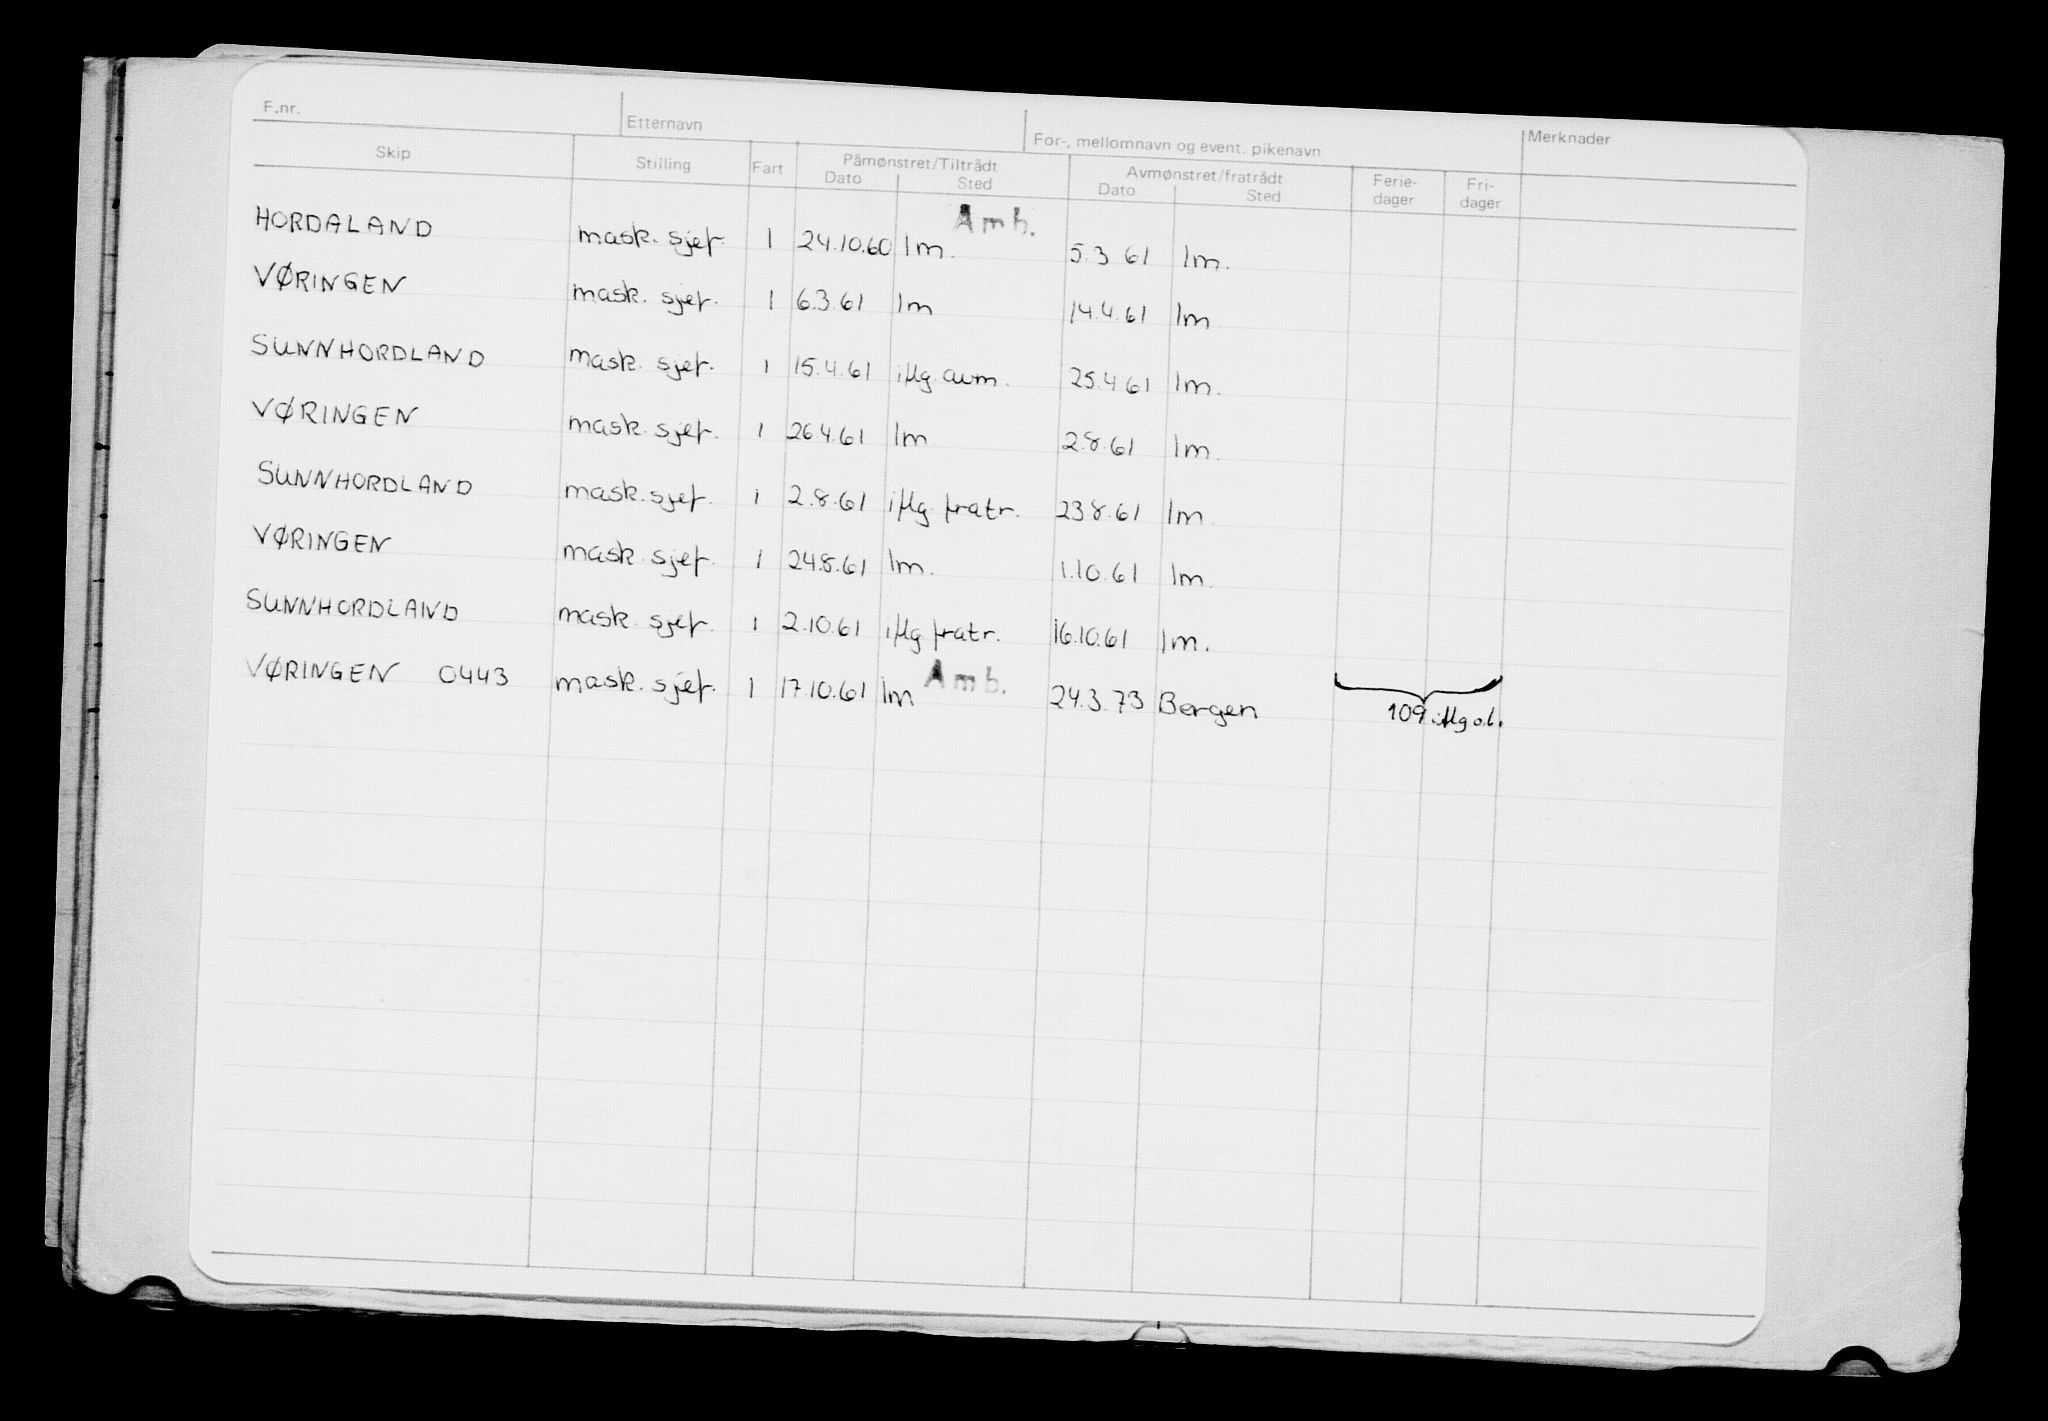 F.nr. Etternavn For-, mellomnavn og event. pikenavn Merknader
Skip Stilling Fart Påmønstret/Tiltrådt Avmønstret/fratrådt Ferie-dager Fri-dager
Dato Sted Dato Sted
HORDALAND mask. sjef. 1 24.10.60 Im. Amb. 5.3 61 Im.
VØRINGEN mask. sjef. 1 6.3.61 Im 14.4.61 Im
SUNNHORDLAND mask. sjef. 1 15.4.61 iflg. avm. 25.4 61 Im.
VØRINGEN mask. sjef. 1 26 4.61 Im 2.8.61 Im.
SUNNHORDLAND mask. sjef. 1 2.8.61 iflg. fratr. 23 8.61 Im
VØRINGEN mask. sjef. 1 24.8.61 Im. 1.10.61 Im.
SUNNHORDLAND mask. sjef. 1 2.10.61 iflg fratr. 16.10.61 Im.
VØRINGEN 0443 mask. sjef. 1 17.10.61 Im Amb. 24.3.73 Bergen
109 iflg o.l.